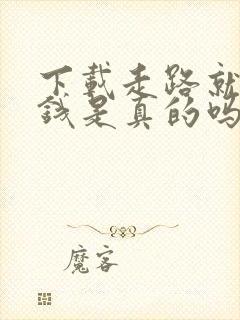 下載走路就
錢是真的嗎
魔客